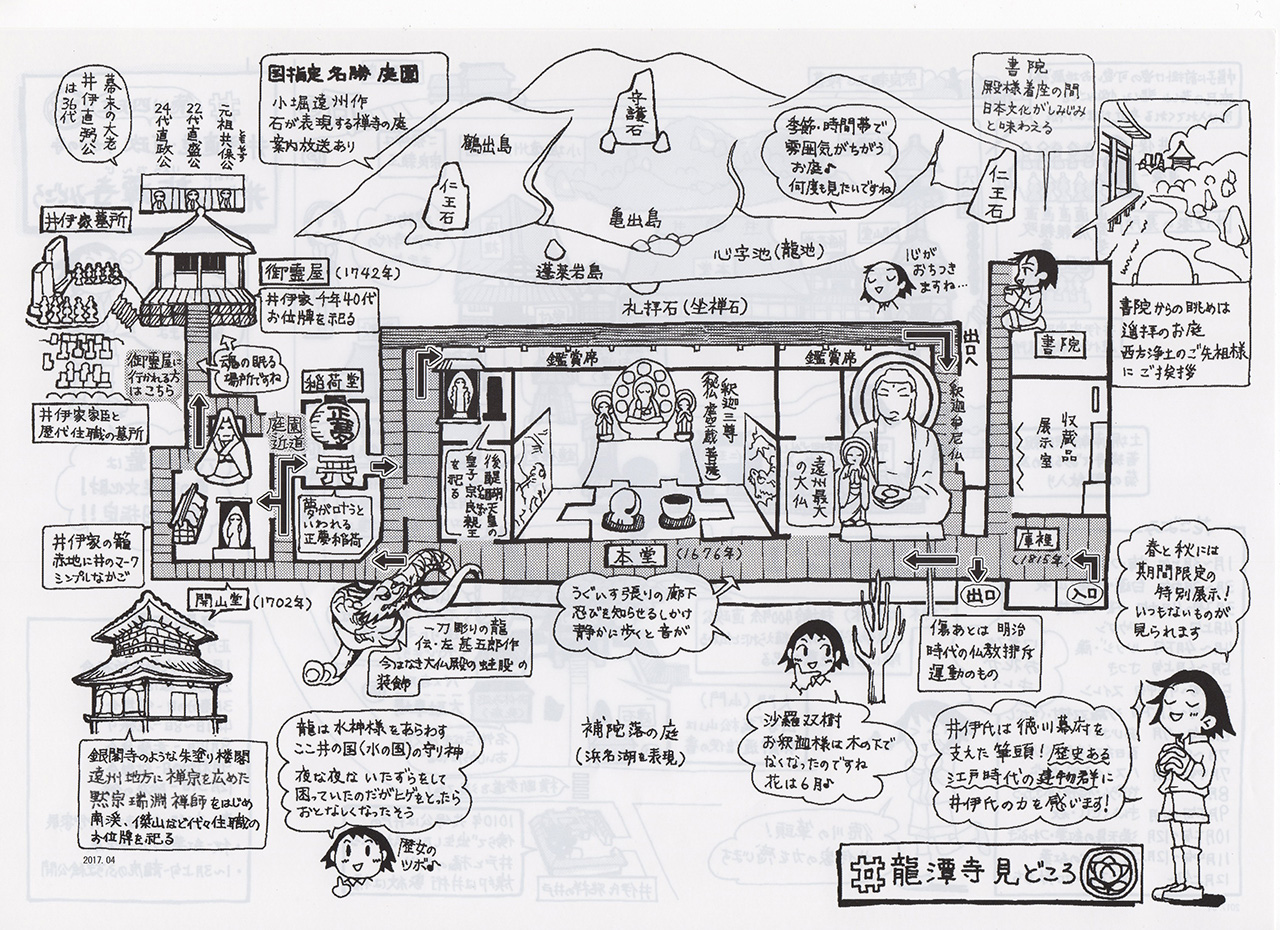 幕末の大老
井伊直弼公
は36代
元祖共保公
ともやす
22代直盛公
24代直政公
国指定名勝庭園
小堀遠州作
石が表現する禅寺の庭
案内放送あり
鶴出島
守護石
仁王石
亀出島
蓬莱岩島
心字池(龍池)
仁王石
礼拝石(坐禅石)
季節・時間帯で
雰囲気がちがう
お庭♪
何度も見たいですね
書院
殿様着座の間
日本文化がしみじみ
と味わえる
心が
おちつき
ますね…
書院からの眺めは
遥拝のお庭
西方浄土のご先祖様
にご挨拶
井伊家墓所
御霊屋(1742年)
井伊家千年40代
お位牌を祀る
御霊屋に
行かれる方
はこちら
魂の眠る
場所ですね
井伊家家臣と
歴代住職の墓所
稲荷堂
正夢
庭園
近道
夢が叶うと
いわれる
正夢稲荷
鑑賞席
鑑賞席
後醍醐天皇の
皇子宗良親王
を祀る
釈迦三尊
(秘仏虚空蔵菩薩)
遠州最大
の大仏
釈迦牟尼仏
出口へ
書院
収蔵品
展示室
庫裡
(1815年)
入口
出口
本堂(1676年)
井伊家の籠
赤地に井のマーク
シンプルなかご
開山堂(1702年)
一刀彫りの龍
伝・左甚五郎作
今はなき大仏殿の蛙股の
装飾
うぐいす張りの廊下
忍びを知らせるしかけ
静かに歩くと音が
傷あとは明治
時代の仏教排斥
運動のもの
春と秋には
期間限定の
特別展示!
いつもないものが
見られます
銀閣寺のような朱塗り楼閣
遠州地方に禅宗を広めた
黙宗瑞淵禅師をはじめ
南渓、傑山など代々住職の
お位牌を祀る
2017.04
龍は水神様をあらわす
ここ井の国(水の国)の守り神
夜な夜ないたずらをして
困っていたのだがヒゲをとったら
おとなしくなったそう
歴女の
ツボ♪
補陀落の庭
(浜名湖を表現)
沙羅双樹
お釈迦様は木の下で
なくなったのですね
花は6月♪
井伊氏は徳川幕府を
支えた筆頭!歴史ある
江戸時代の建物群に
井伊氏の力を感じます!
龍潭寺見どころ